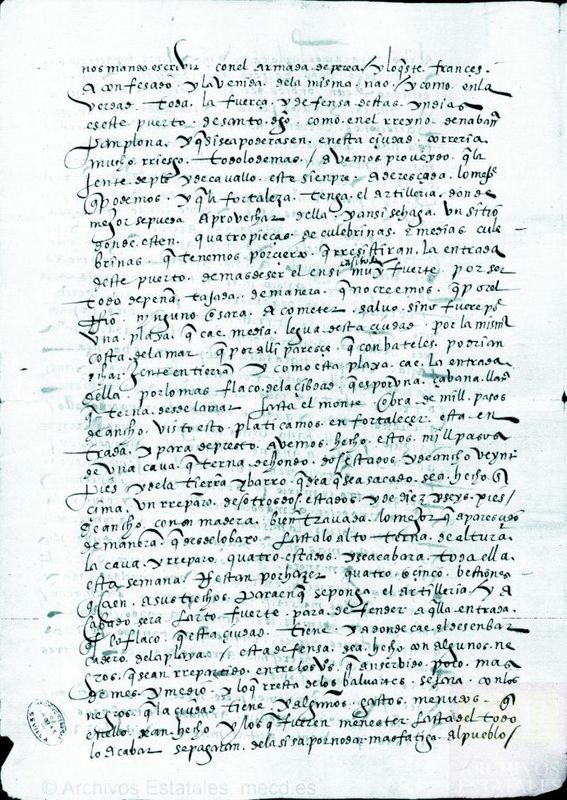 nos mando escrivir con el armada de proa / y lo q̃ste frances
a confesado y la venida de la misma nao / y como en la
verdad toda la fuerça y defensa destas yndias
es este puerto de santo dgo como en el rreyno de nabarra
pamplona y q̃ si se apoderasen en esta ciudad correria
mucho rriesgo todo lo demas / avemos proveydo q̃ la
jente de pie y de cavallo este sienpre adereçada lo mejor
q̃ podemos y q̃ la fortaleza tenga el artilleria donde
mejor se pueda aprovechar della y ansi se haga un sitio
donde esten quatro pieças de culebrinas e medias cule
brinas q̃ tenemos por çierto q̃ rresistiran la entrada
deste puerto demas de ser el en si casi todo muy fuerte por ser
todo de peña tajada de manera q̃ no creemos q̃ por el
rrio ninguno osara acometer salvo si no fuere por
una playa q̃ cae media legua desta ciudad por la misma
costa de la mar q̃ por alli paresçe q̃ con bateles podrian
echar jente en tierra y como esta playa cae la entrada
della por lo mas flaco de la çibdad q̃ es por una çabana llana
q̃ terna desde la mar hasta el monte obra de mill pasos
de ancho visto esto platicamos en fortaleçer esta en
trada y para de presto avemos hecho estos mill pasos
de una cava q̃ terna de hondo dos estados y de ancho veynte
pies y de la tierra y barro q̃ de aq̃ se a sacado se a hecho en
cima un rreparo de otros dos estados y de diez y seys pies /
de ancho con su madera bien travada lo mejor q̃ a paresçido
de manera q̃ desde lo baxo hasta lo alto terna de altura
la cava y rreparo quatro estados y se acabara toda ella
esta semana rrestan por hazer quatro o çinco bestiones
q̃ salen a sus trechos para en q̃ se ponga el artilleria / y a
cabado sera harto fuerte para defender aq̃lla entrada
q̃ es lo flaco q̃ esta ciudad tiene y adonde cae el desenbar
cadero de la playa / esta defensa se a hecho con algunos ne
gros q̃ se an rrepartido entre los vºs q̃ an servido poco mas
de mes y medio y lo q̃ rresta de los baluartes se hara con los
negros q̃ la ciudad tiene y algunos gastos menudos q̃
en ello se an hecho / y los q̃ fueren menester hasta del todo
lo acabar se pagaran de la sisa por no dar mas fatiga al pueblo /
© Archivos Estatales, mecd.es